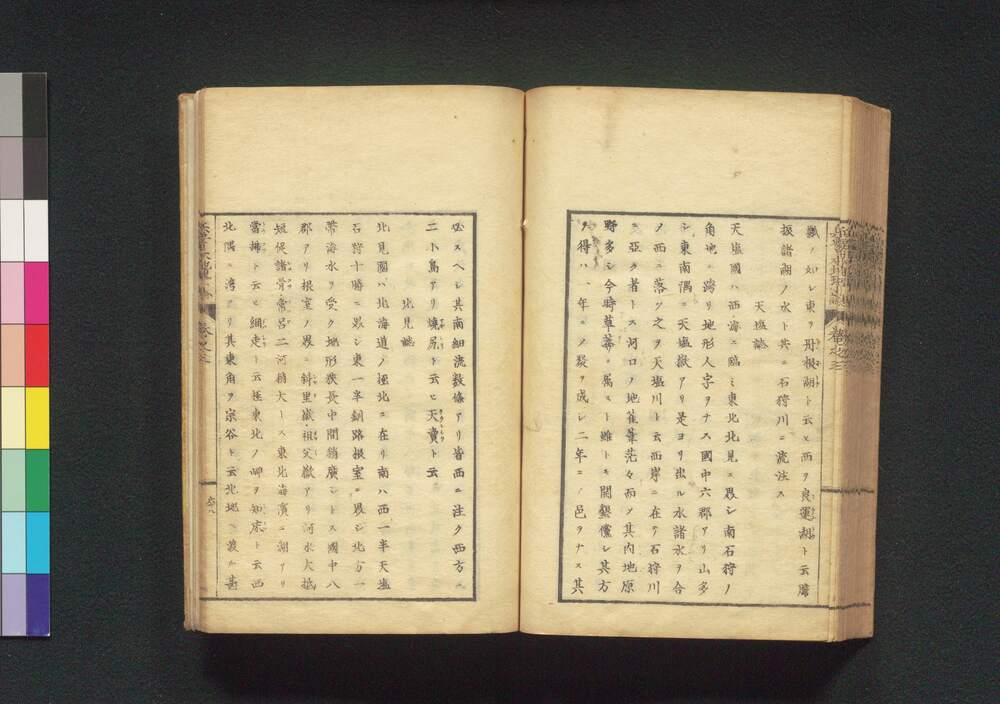 嶽ノ如シ東ヲ丹根湖ト云ヒ西ヲ良運湖ト云膽
振諸湖ノ水ト共ニ石狩川ニ流注ス
天塩誌
天塩國ハ西海ニ臨ミ東北北見ニ界シ南石狩ノ
角地ニ湾リ地形人字ヲナス國中六郡アリ山多
シ東南隅ニ天塩嶽アリ是ヨリ出ル水諸水ヲ合
ノ西ニ落ツ之ヲ天塩川ト云西岸ニ在テ石狩川
ニ亞ク者トス河口ノ地萑葦茫々而ノ其内地原
野多シ今時草莽ニ属スト雖トモ開墾儻シ其方
ヲ得ハ一年ニノ聚ヲ成シ二年ニノ邑ヲナス其
必スヘシ其南細流数條アリ皆西ニ注ク西方ニ
二小島アリ燒尻ト云ヒ天賣ト云
北見誌
北見國ハ北海道ノ極北ニ在リ南ハ西一半天塩
石狩十勝ニ界シ東一半釧路根室ニ界シ北方一
帯海水ヲ受ク地形狭長中間稍廣シトス國中八
郡アリ根室ノ界ニ斜里嶽祖父嶽アリ河水大抵
短促諸骨常呂二河稍大トス東北海濱ニ湖アリ
當拂ト云ヒ網走ト云極東北ノ岬ヲ知床ト云西
北隅ニ湾アリ其東角ヲ宗谷ト云北地ヘ渡ル甚